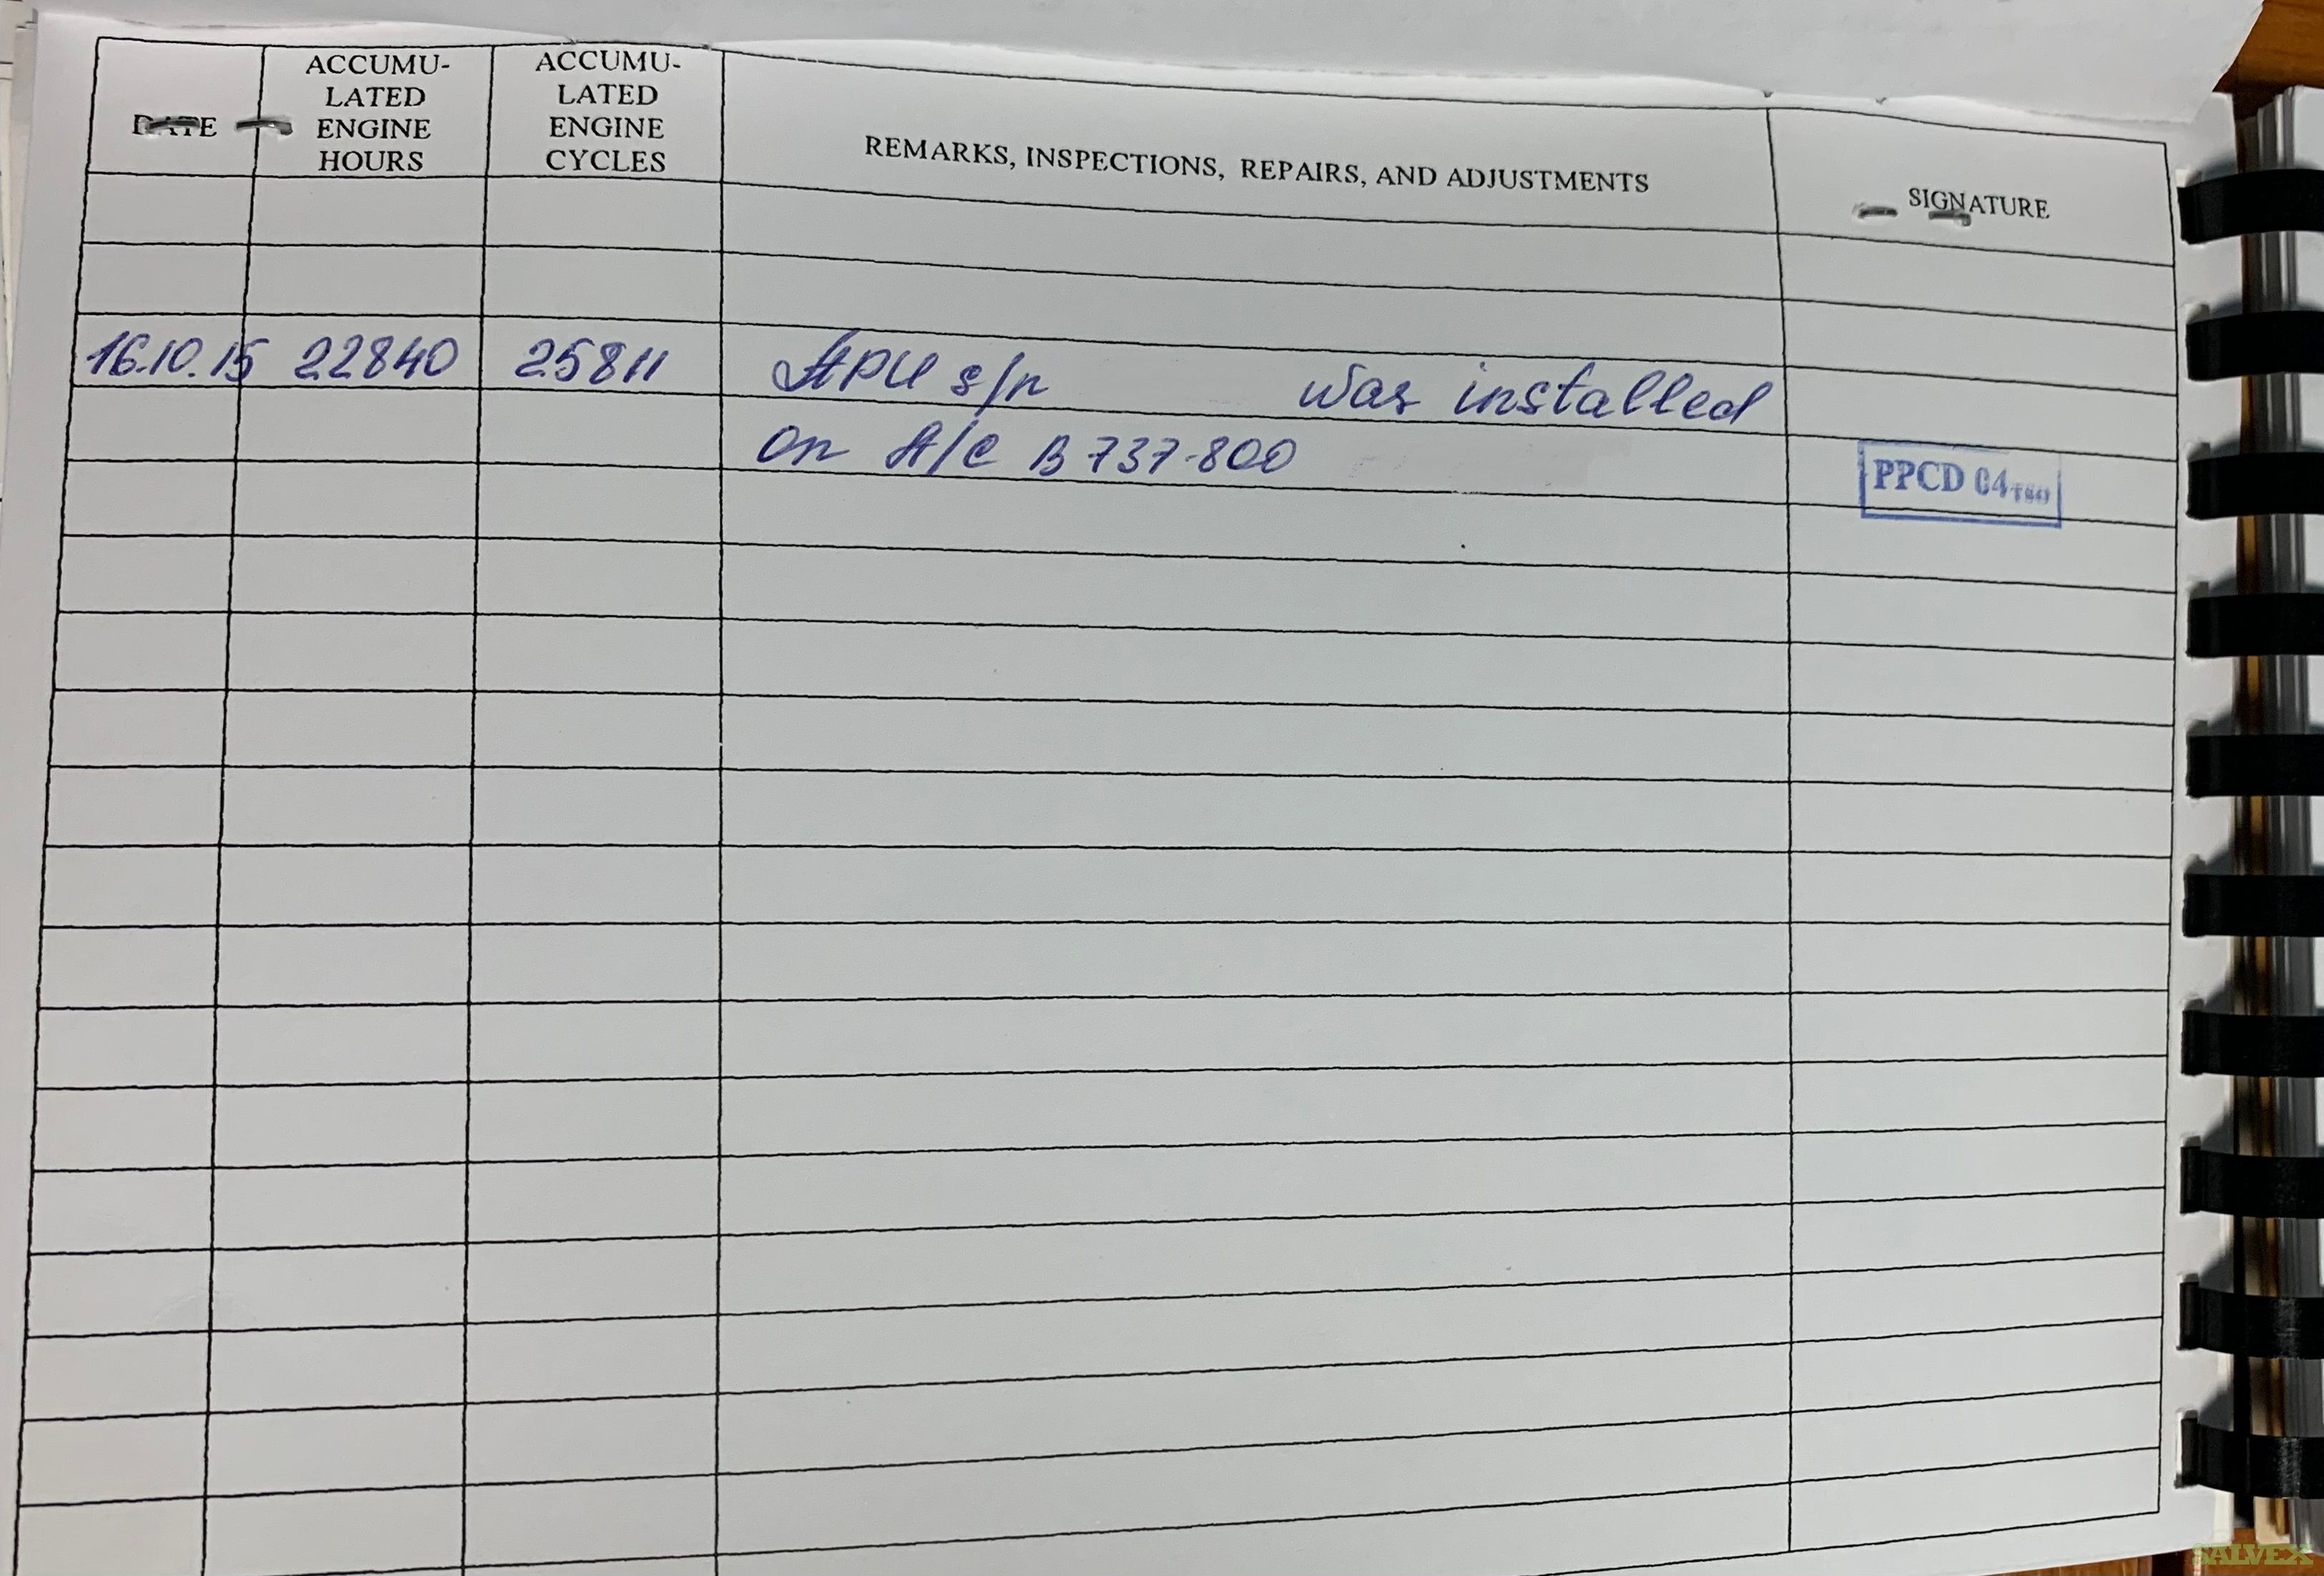 DATE
ACCUMU-
LATED
ENGINE
HOURS
ACCUMU-
LATED
ENGINE
CYCLES
REMARKS, INSPECTIONS, REPAIRS, AND ADJUSTMENTS
SIGNATURE
16.10.15 22840 25811 APU s/n was installed
on A/C B737-800
PPCD 04
SALVEX